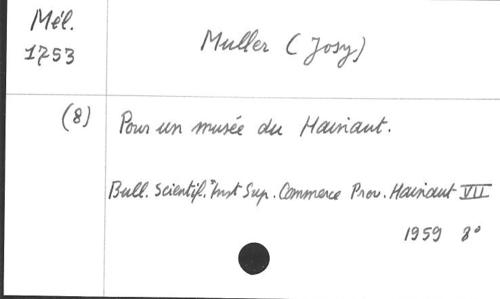 Mél.
1753
Muller (Josy)
(8) Pour un musée du Hainaut.
Bull. Scientif. Inst Sup. Commerce Prov. Hainaut VII
1959 8°